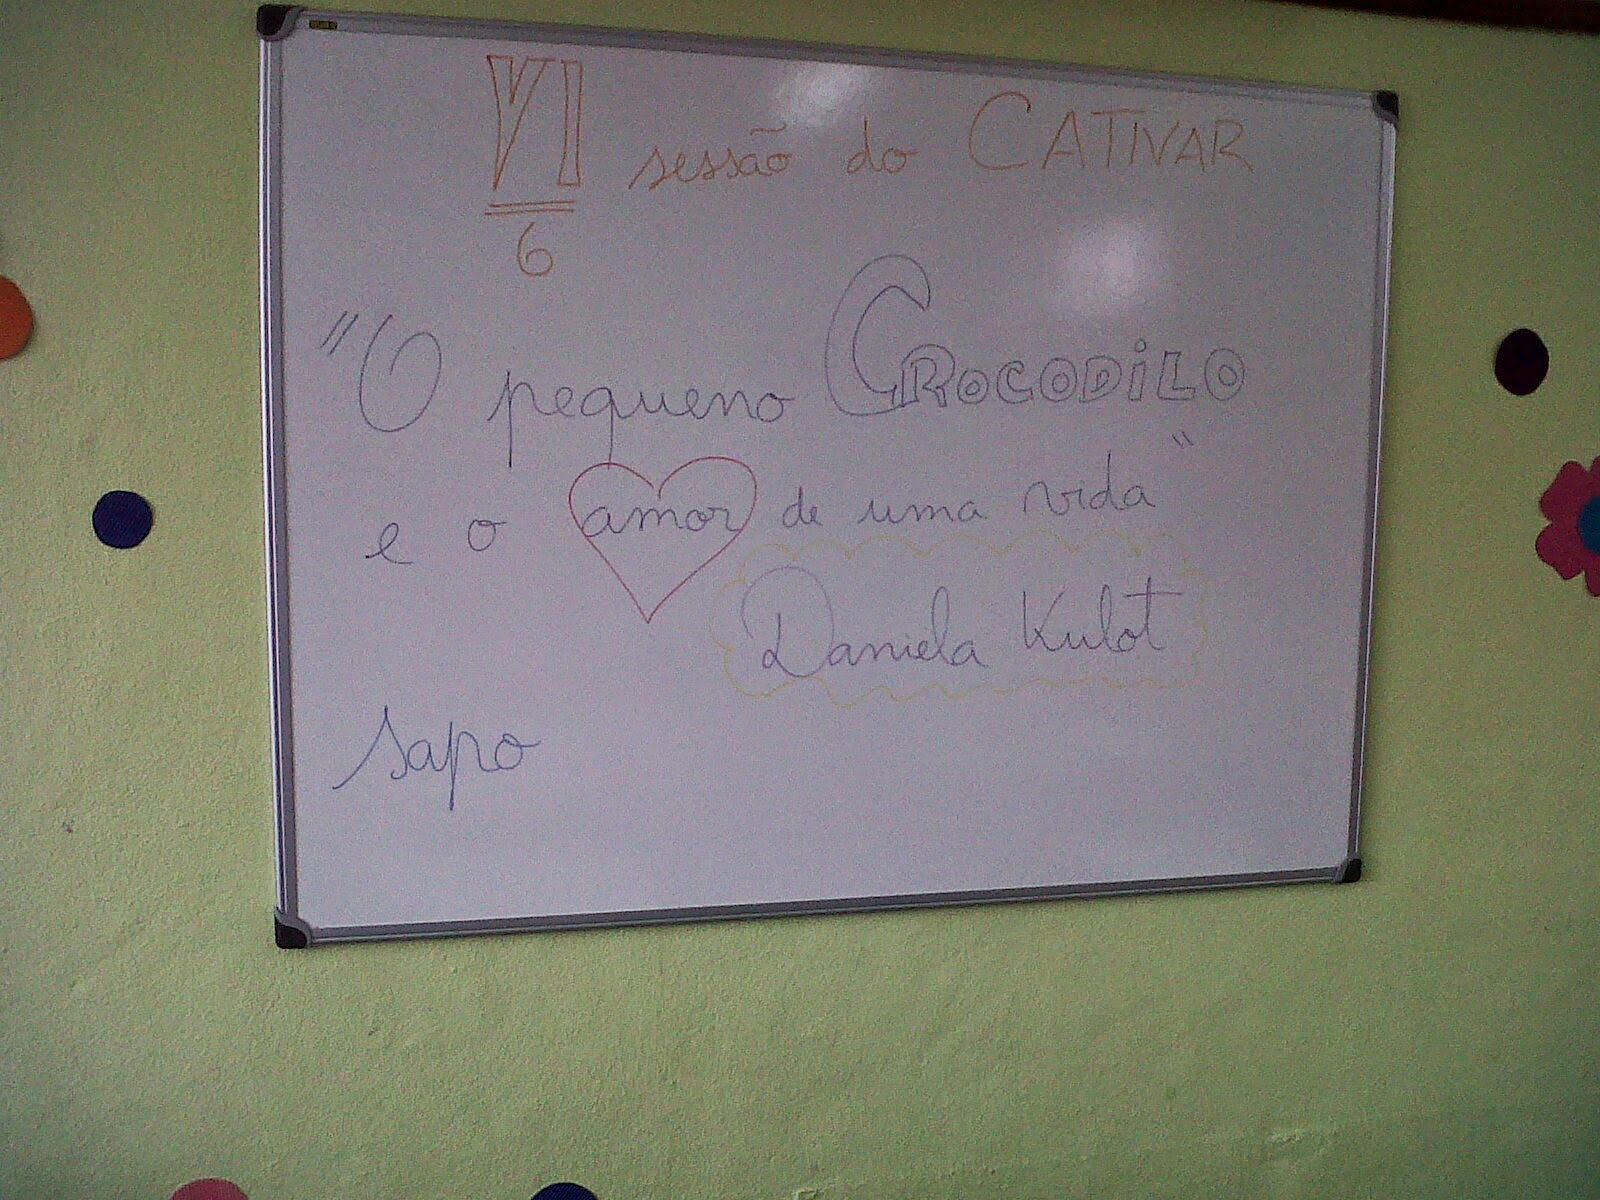 VI sessão do CATIVAR
6
"O pequeno CROCODILO
e o amor de uma vida"
Daniela Kulot
sapo